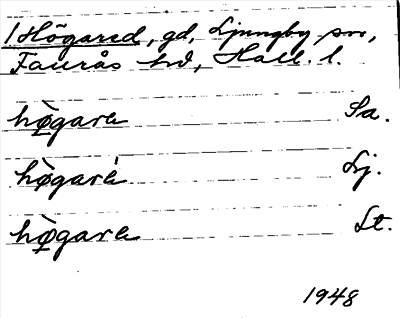 /Högared, gd, Ljungby sn,
Faurås hd, Hall. l.
hø̀gara Sa.
hø̀garè Lj.
hø̀gara Lt.
1948